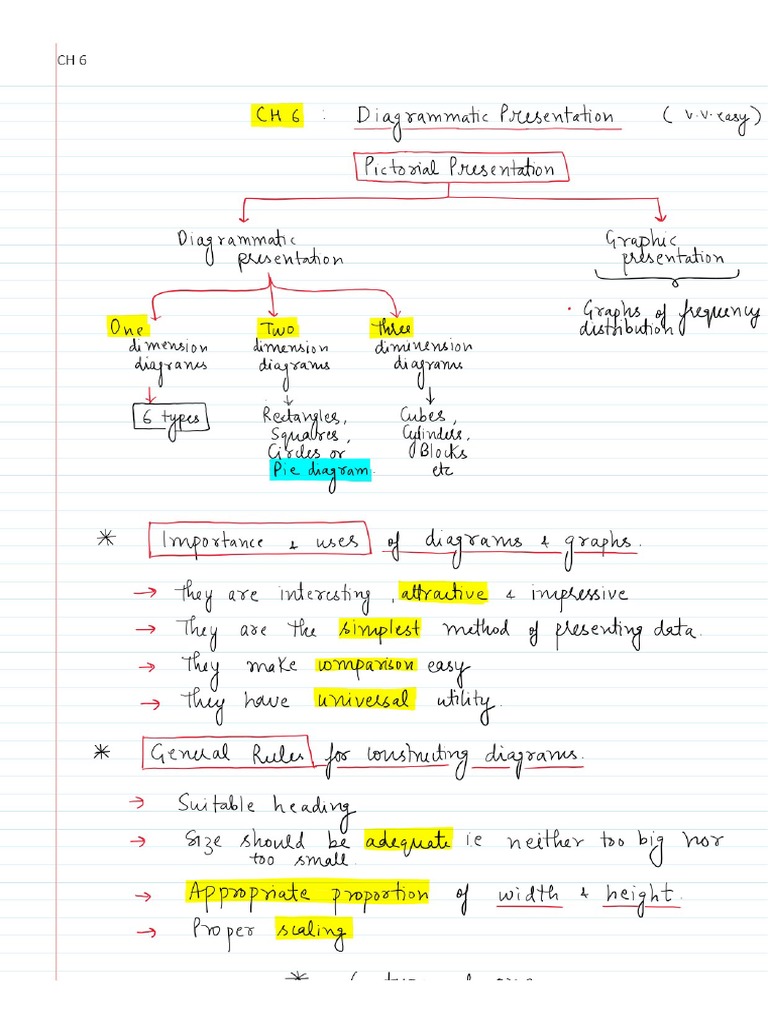 CH 6
CH 6 : Diagrammatic Presentation ( v.v.easy)
Pictorial Presentation
Diagrammatic
presentation
Graphic
presentation
One
dimension
diagrams
Two
dimension
diagrams
three
diminension
diagrams
• Graphs of frequency
distribution
6 types
Rectangles,
Squares,
Circles or
Pie diagram.
Cubes,
Cylinders,
Blocks
etc
* Importance & uses of diagrams & graphs.
→ They are interesting, attractive & impressive
→ They are the simplest method of presenting data.
→ They make comparison easy
→ They have universal utility.
* General Rules for constructing diagrams.
→ Suitable heading
→ Size should be adequate ie neither too big nor
too small.
→ Appropriate proportion of width & height.
→ Proper scaling